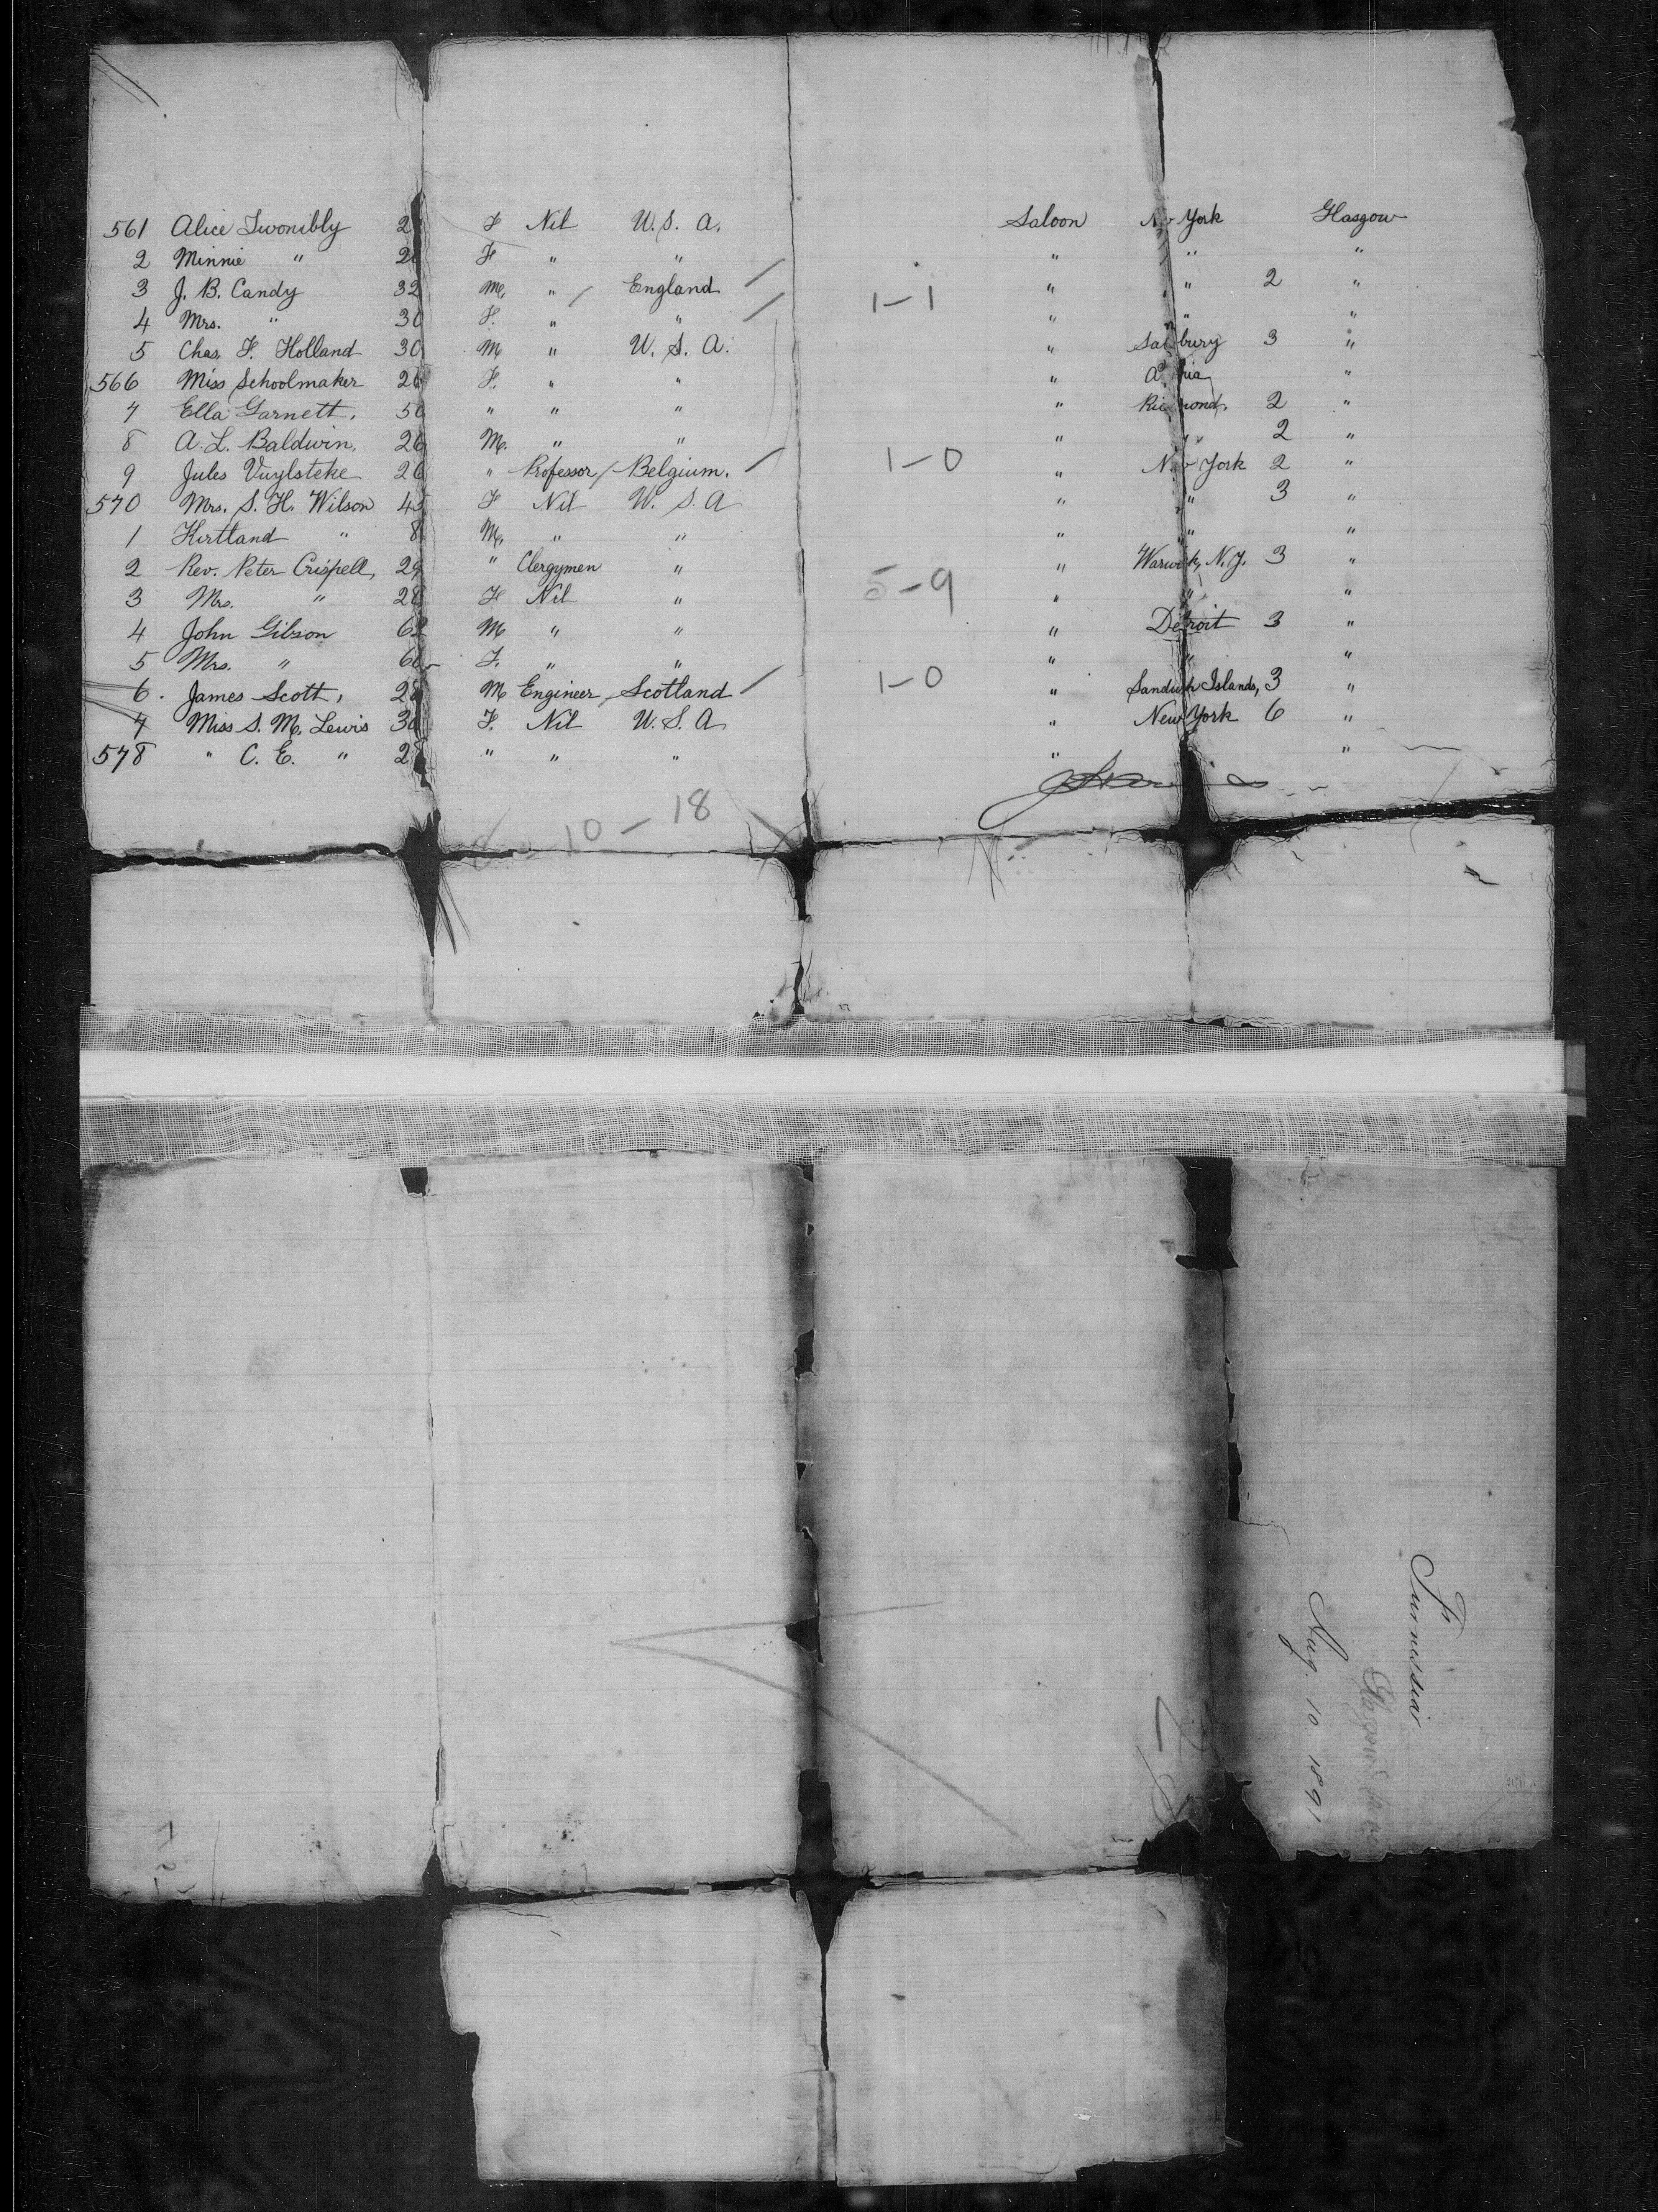 561 Alice Twonibly 2 F Nil U.S.A. Saloon New York Glasgow
2 Minnie " 2 F " " " " "
3 J. B. Candy 32 M. " / England / " " 2 "
4 Mrs. " 30 F. " " / 1-1 " " "
5 Chas. F. Holland 30 M " U.S.A. " Salsbury 3 "
566 Miss Schoolmaker 26 F. " " " "
7 Ella Garnett. 50 " " " " Richmond. 2 "
8 A. L. Baldwin. 26 M. " " " " 2 "
9 Jules Vuylsteke 26 " Professor / Belgium. / 1-0 " New York 2 "
570 Mrs. S. H. Wilson 45 F Nil U.S.A " " 3 "
1 Kirtland " 8 M. " " " " "
2 Rev. Peter Crispell, 29 " Clergymen " " Warwick, N.Y. 3 "
3 Mrs. " 28 F Nil " 5-9 " " "
4 John Gibson 62 M " " " Detroit 3 "
5 Mrs. " 60 F. " " " " "
6. James Scott, 28 M Engineer, Scotland / 1-0 " Sandwich Islands, 3 "
7 Miss S. M. Lewis 30 F. Nil U.S.A " New York 6 "
578 " C. E. " 28 " " " " "
10-18
Furnessia
Glasgow
Aug. 10. 1891